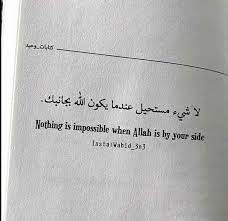 كتابات_وحيد
لا شيء مستحيل عندما يكون الله بجانبك.
Nothing is impossible when Allah is by your side
Insta:Wahid_3o3